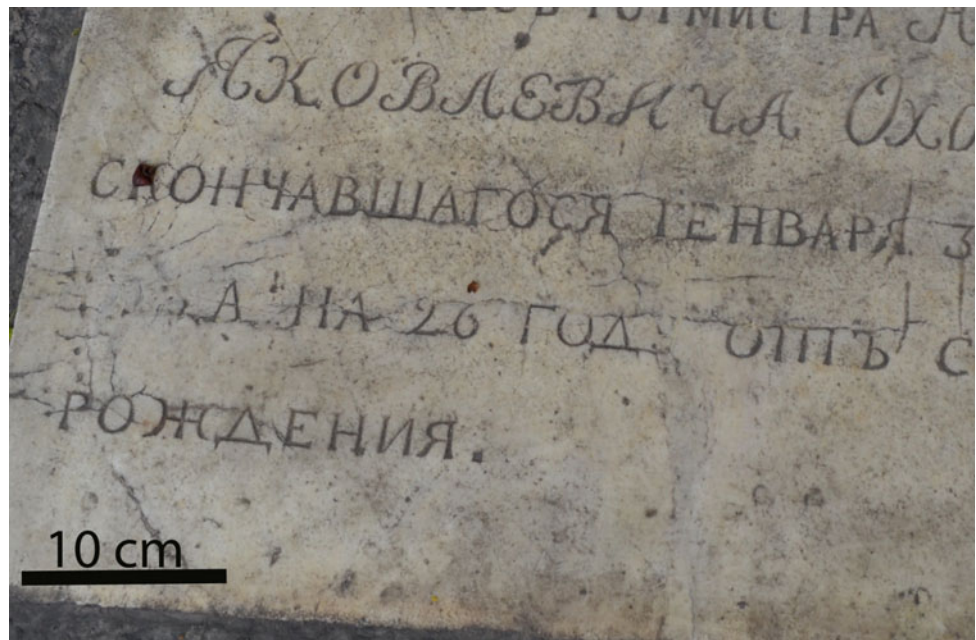 РОТМИСТРА
ЯКОВЛЕВИЧА
СКОНЧАВШАГОСЯ ГЕНВАРЯ 3
А НА 26 ГОД. ОТЪ
РОЖДЕНИЯ.
10 cm